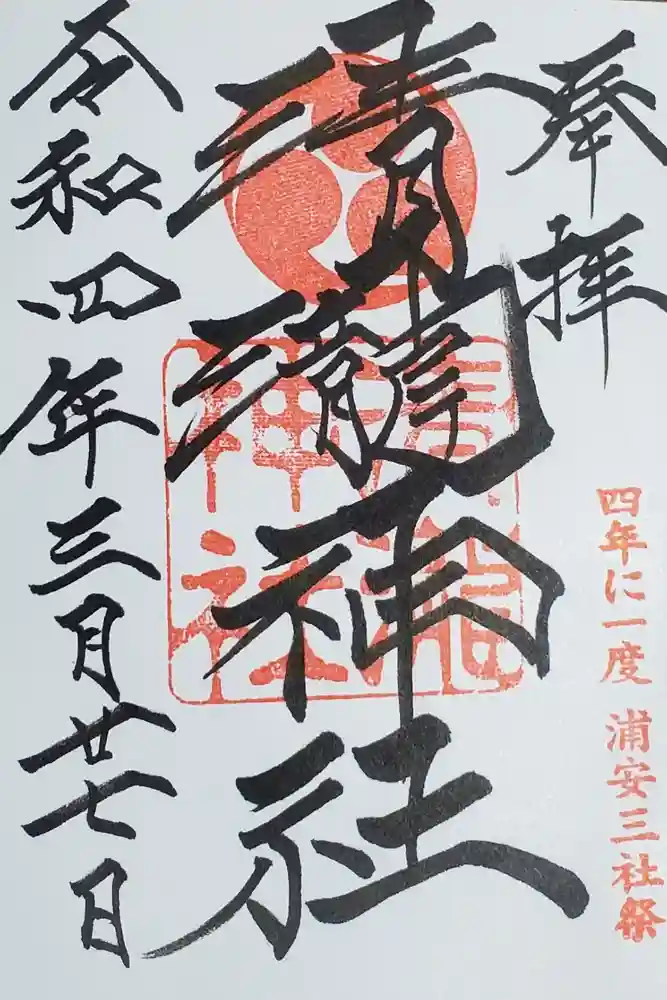 奉拝
四年に一度 浦安三社祭
清瀧神社
清瀧神社
令和四年三月廿七日